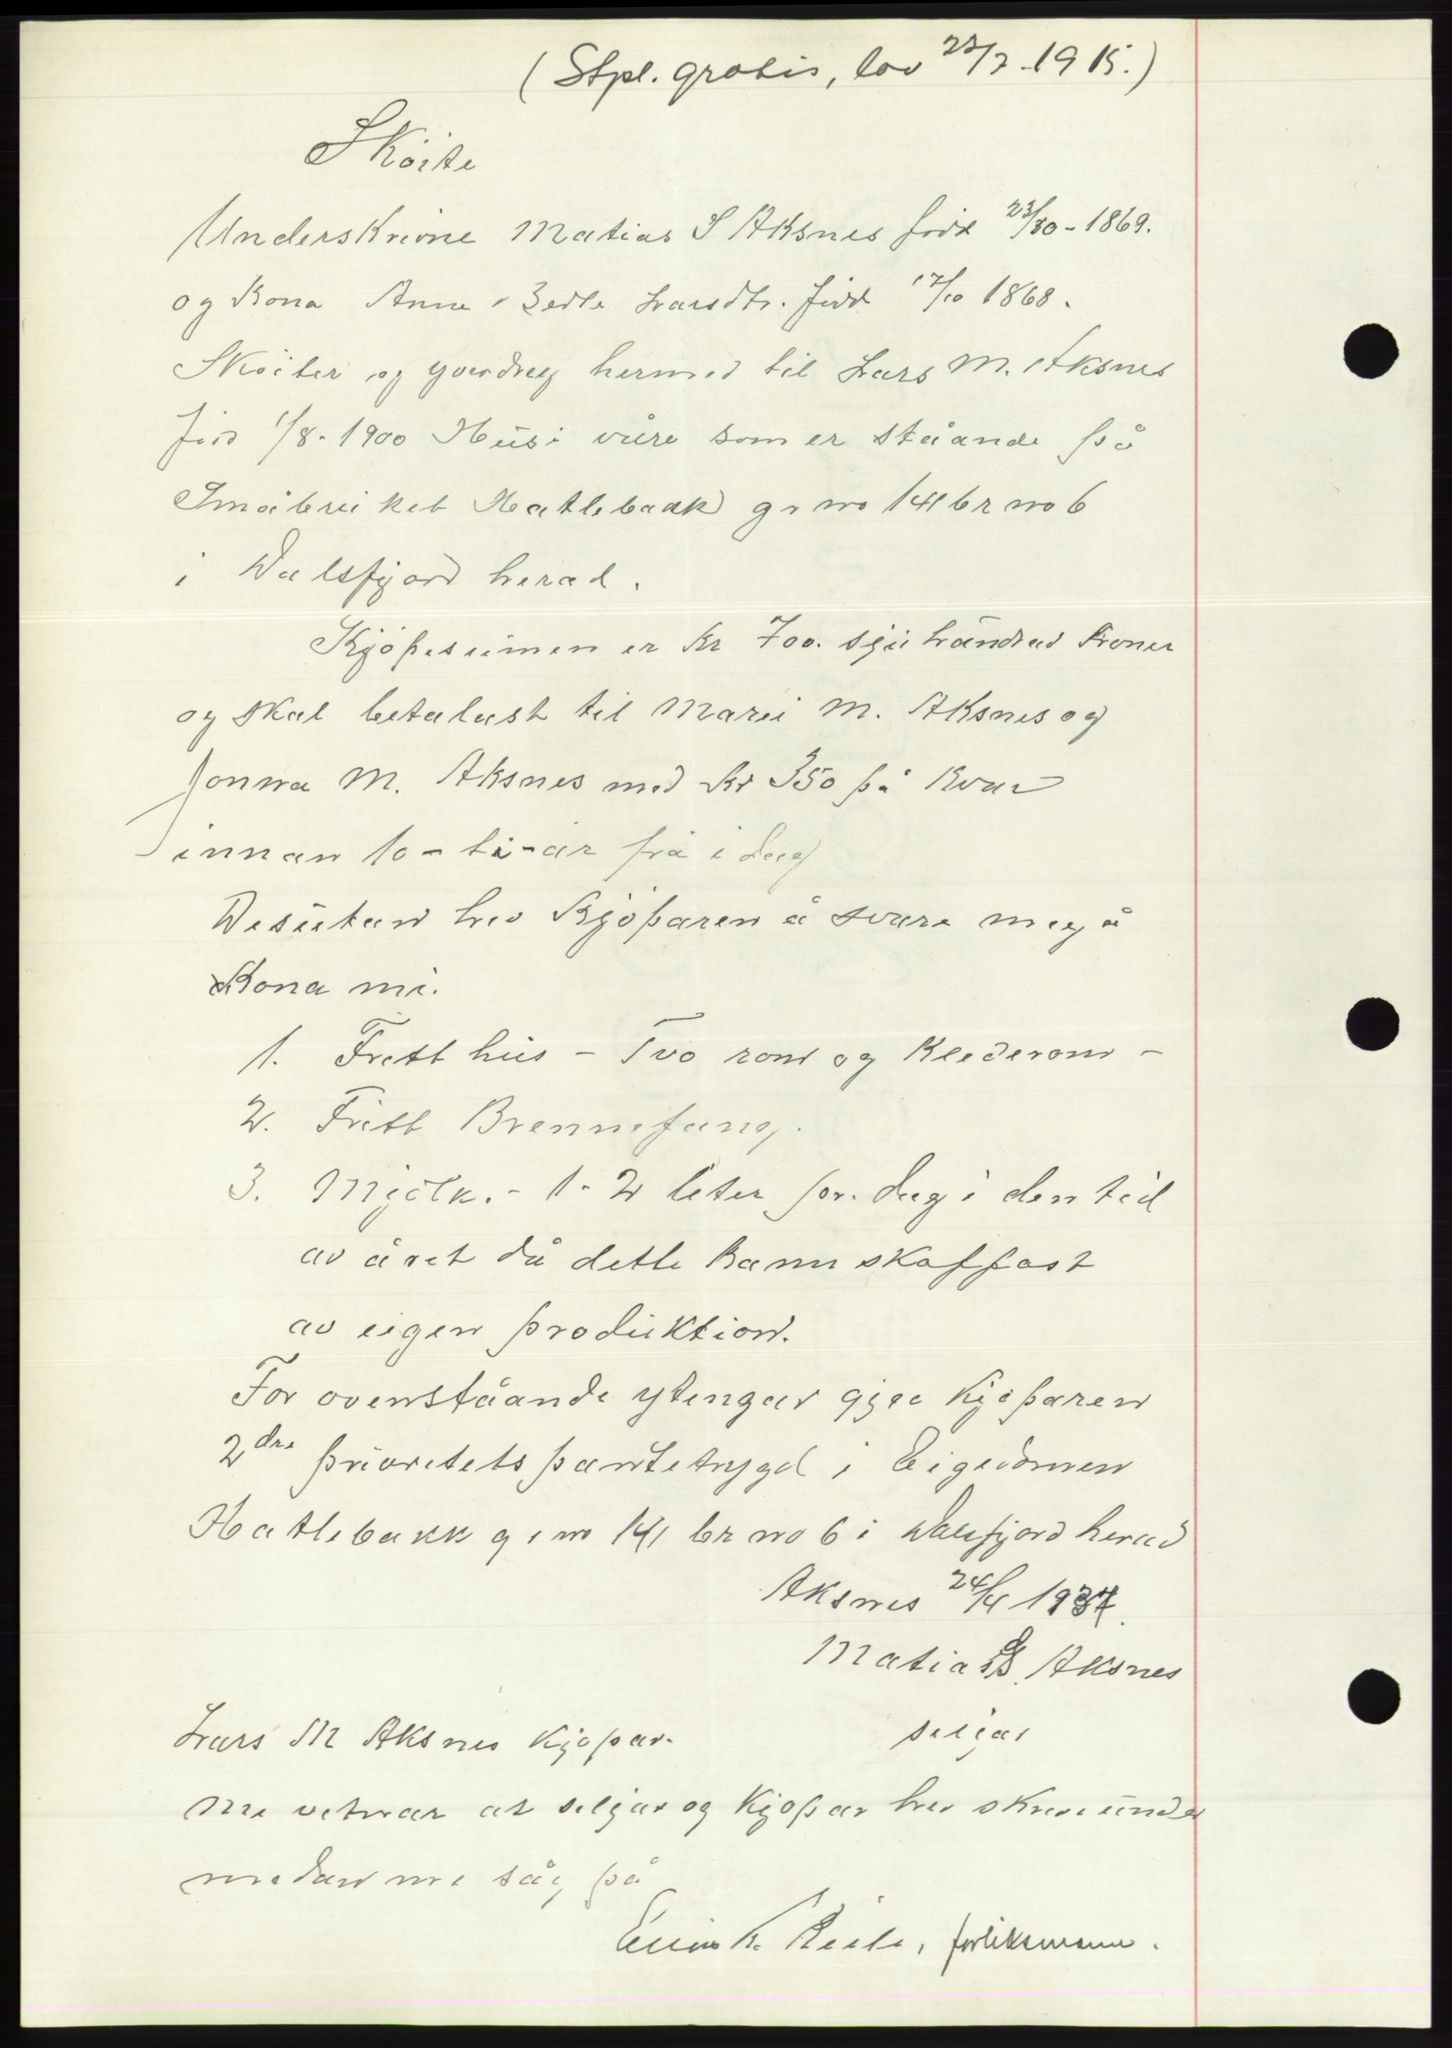 (Stpl. gratis, lov 23/7-1915.)
Skøite
Underskrivne Matias S Aksnes født 23/10-1869.
og kona Anne Larsdtr. född 17/10 1868.
Skøiter og yverdreg hermed til Lars M. Aksnes
född 1/8-1900 Husi våre som er ståande på
Småbruket Hatlebakk gr no 141 br no 6
i Dalsfjord herad.
Kjöpesumen er kr 700. sju hundrad kroner
og skal betalast til Marii M. Aksnes og
Jonna M. Aksnes med kr 350 på kvar
innan 10 - ti - år frå i dag
Desutan hev kjöparen å svara meg å
kona mi.
1. Fritt hus - Tvo rom og klederom -
2. Fritt Brennefang.
3. Mjölk. - 1 - 2 liter pr. dag i den tid
av året då dette kann skaffast
av eigen produktion.
For ovenståande ytingar gjev kjöparen
2dre prioritets pantetrygd i Eigedomen
Hatlebakk gr no 141 br no 6 i Dalsfjord herad
Aksnes 24/4 1937.
Matias S. Aksnes
seljar
Lars M Aksnes kjøpar.
Me vitnar at seljar og kjøpar hev skrive under
medan me såg på
K. , forliksmann.